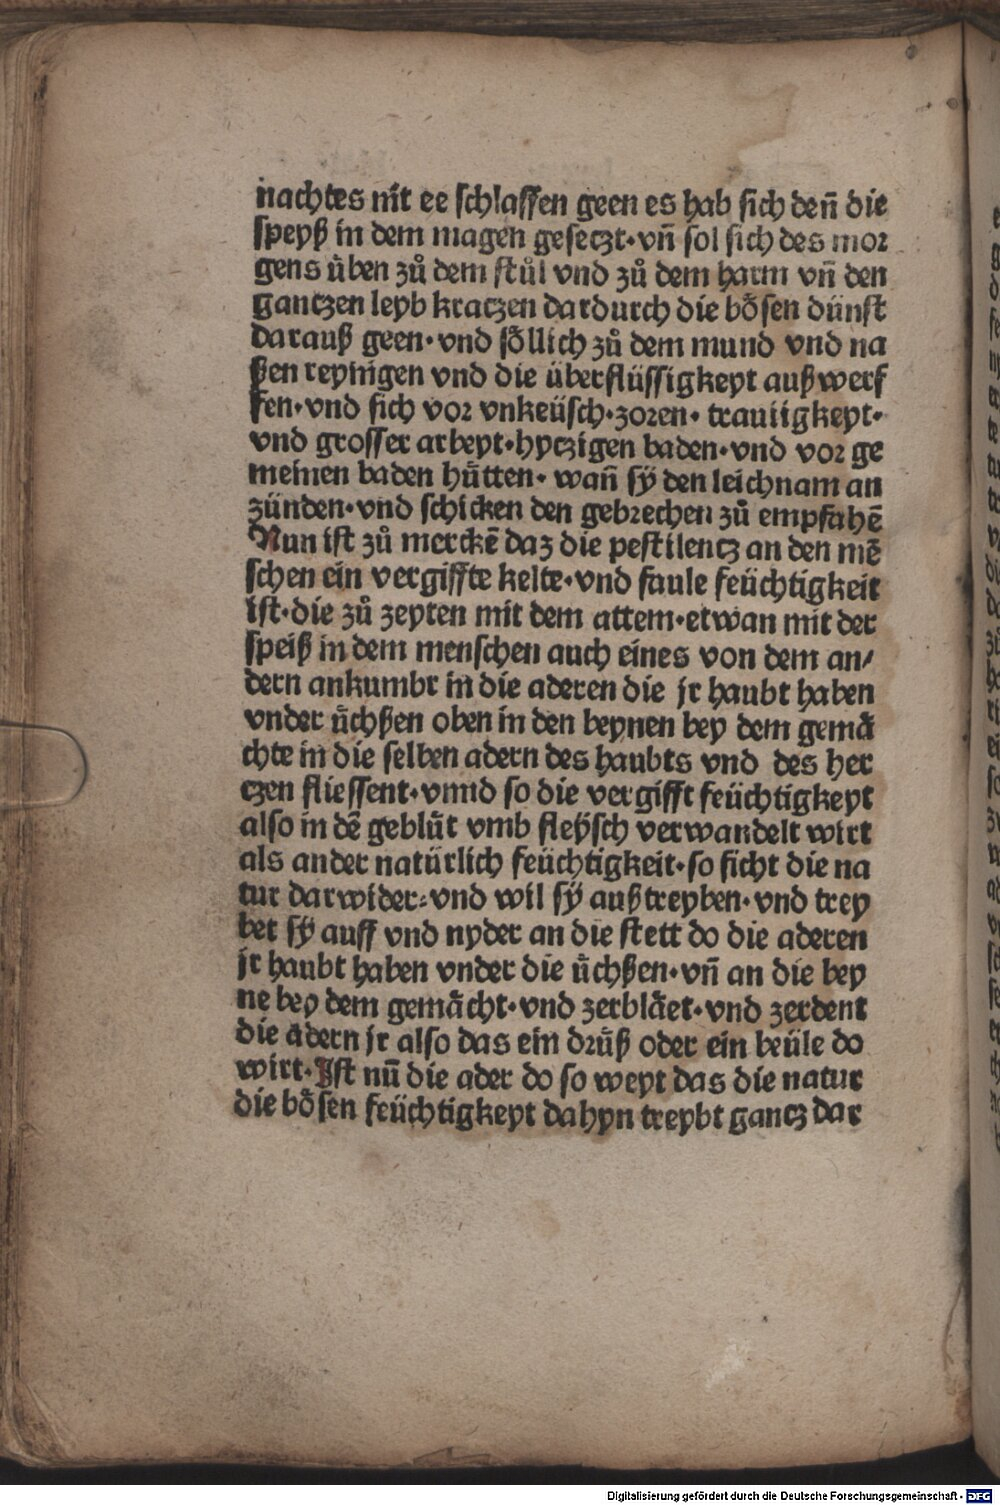 nachtes nit ee schlaffen geen es hab sich deñ die
speyß in dem magen gesetzt·vñ sol sich des mor
gens ůben zů dem stůl vnd zů dem harm vñ den
gantzen leyb kratzen dardurch die bősen dünst
darauß geen·vnd sőllich zů dem mund vnd na
ßen reynigen vnd die überflüssigkeyt außwerf
fen·vnd sich vor vnkeüsch·zoren·trauiigkeyt·
vnd grosser arbeyt·hytzigen baden·vnd vor ge
meinen baden hůtten·wañ sÿ den leichnam an
zünden·vnd schicken den gebrechen zů empfahē
Nun ist zů merckē daz die pestilentz an den mē
schen ein vergiffte kelte·vnd faule feüchtigkeit
ist·die zů zeyten mit dem attem·etwan mit der
speiß in dem menschen auch eines von dem an/
dern ankumbt in die aderen die jr haubt haben
vnder ůchßen oben in den beynen bey dem gemä
chte in die selben adern des haubts vnd des her
tzen fliessent·vnnd so die vergifft feüchtigkeyt
also in dē geblůt vmb fleÿsch verwandelt wirt
als ander natürlich feüchtigkeit·so ficht die na
tur darwider:vnd wil sÿ außtreyben·vnd trey
bet sÿ auff vnd nyder an die stett do die aderen
jr haubt haben vnder die ůchßen·vñ an die bey
ne bey dem gemächt·vnd zerbläet·vnd zerdent
die adern jr also das ein drůß oder ein beüle do
wirt·Ist nū die ader do so weyt das die natur
die bősen feüchtigkeyt dahyn treybt gantz dar
Digitalisierung gefördert durch die Deutsche Forschungsgemeinschaft - DFG